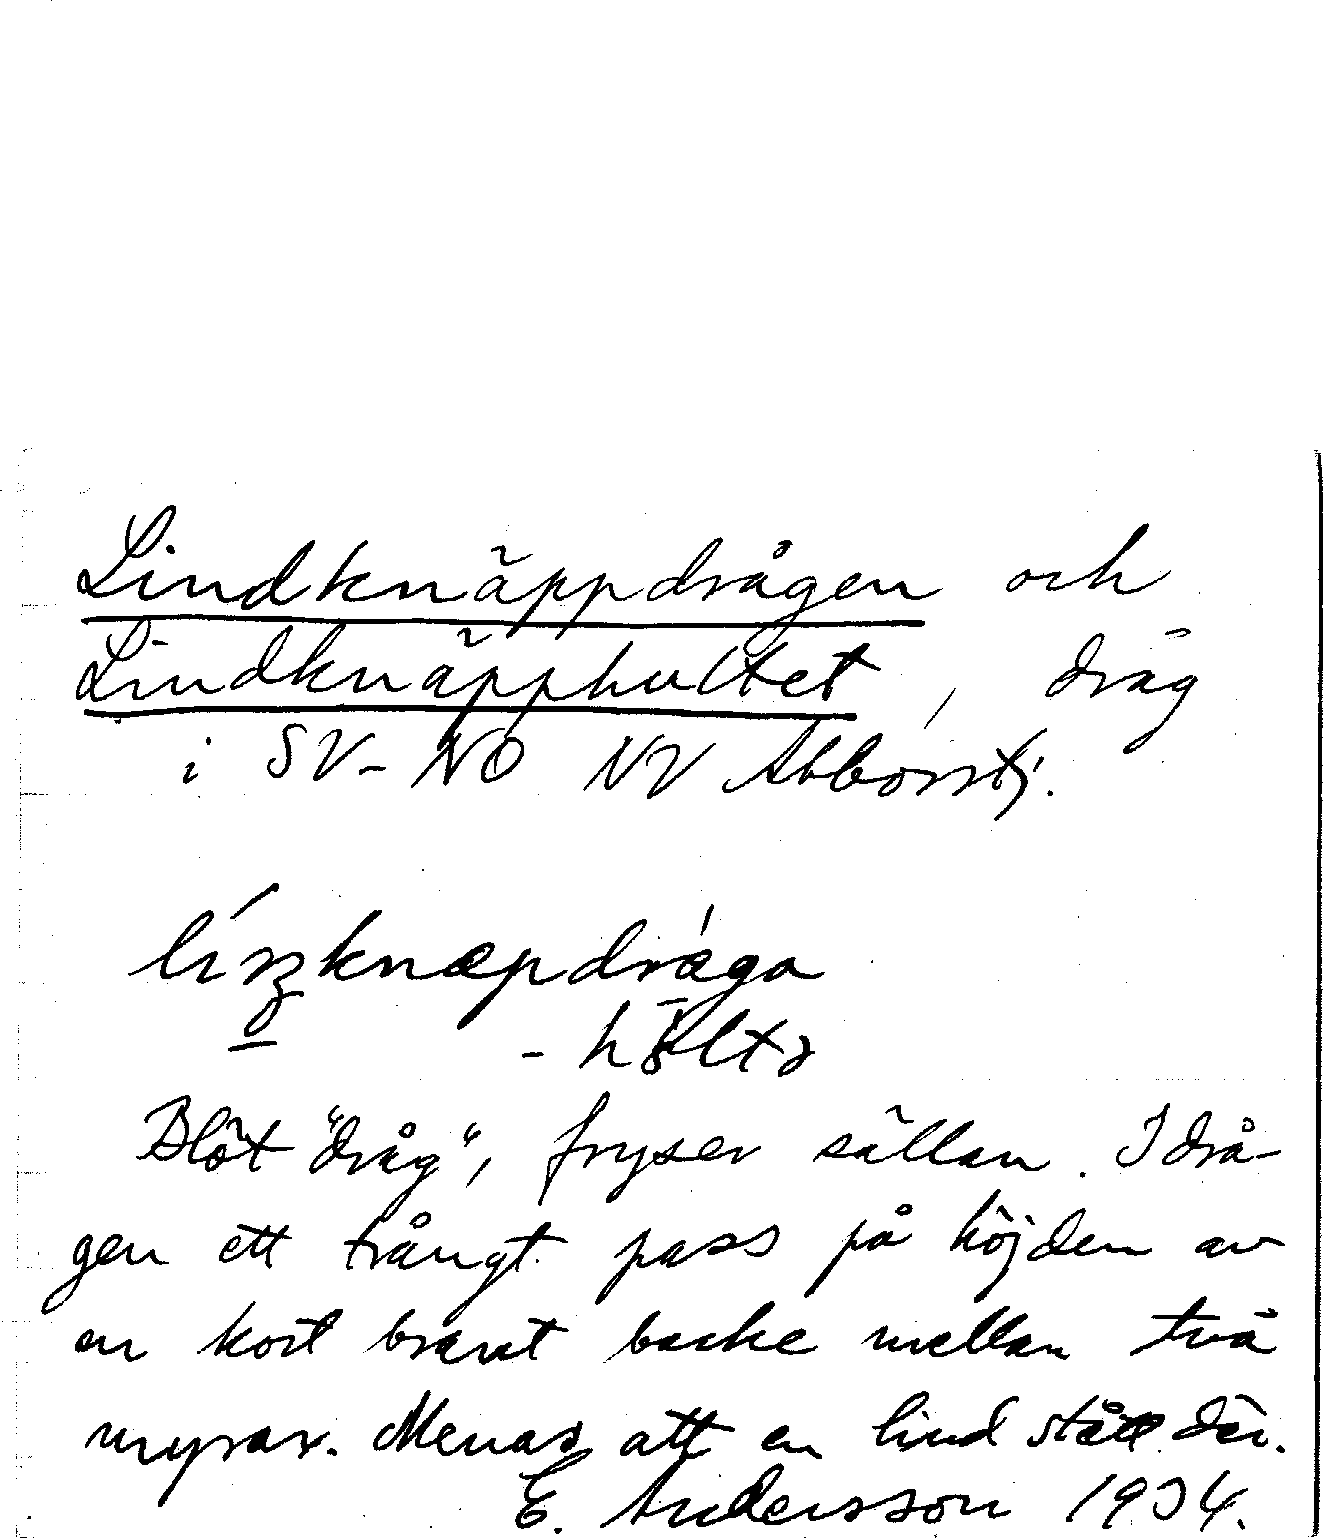 Lindknäppdrågen och
Lindknäpphultet, dråg
i SV-NO NV Abborrtj.
- hölta
Blöt "dråg", fryser sällan. I drå-
gen ett trångt pass på höjden av
en kort brant backe mellan två
myrar. Menas att en lind stått där.
E. Andersson 1934.